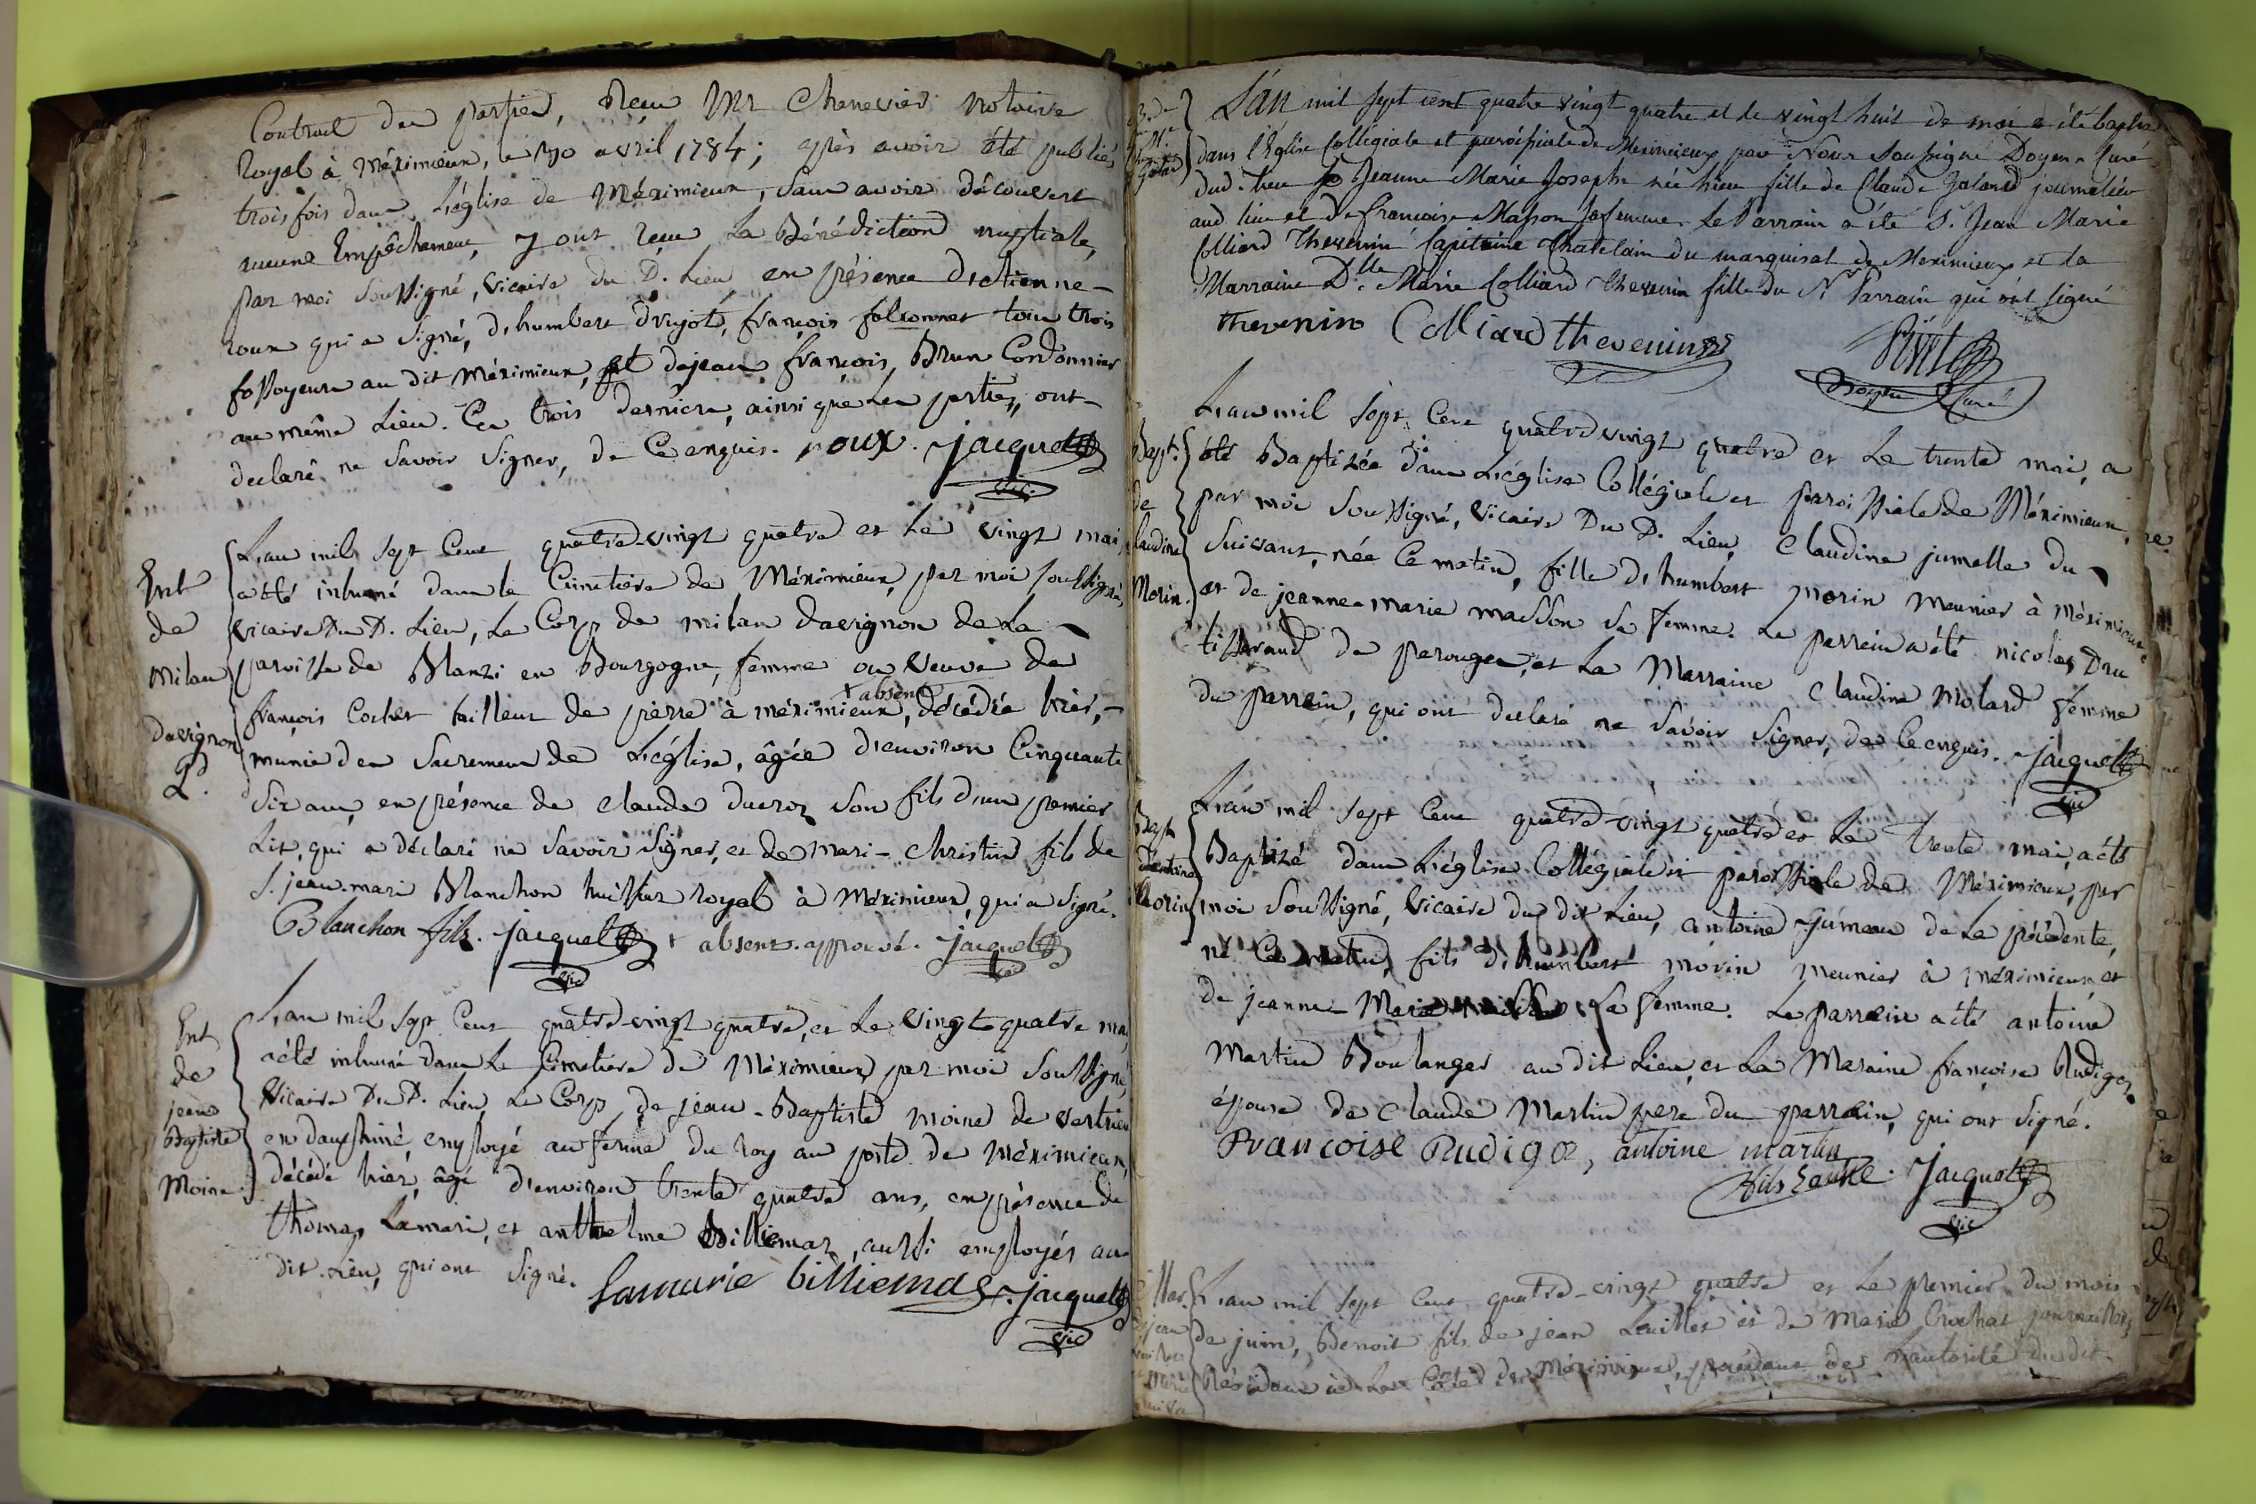 Contract des parties, Reçu Mr Chenevier notoire
Royal à Méximieux, le avril 1784; après avoir été publiés
trois fois dans L'église de Méximieux, sans avoir découvert
aucune Empêchement, y ont reçu La Bénédiction nuptiale,
par moi Soussigné, vicaire du D. Lieu en présence d'etienne
roux qui a signé, d'humbert drujot, françois falconnet tous trois
fossoyeurs au dit Méximieux, et de jean françois Brun Cordonnier
au même Lieu. Ces trois derniers, ainsi que Les parties, ont
declaré ne Savoir Signer, de Ce enquis. roux. jacquet
vic
Ent
de
Milan
davignon
L'an mil sept Cent quatre-vingt quatre et Le vingt mai
a été inhumé dans le Cimetiere de Méximieux, par moi soussigné,
vicaire Du D. Lieu, Le Corps de milan davignon de La
paroisse de Blanzi en Bourgogne, femme ou veuve de
françois Cochet tailleur de pierre à méximieux, x absent décédée hier,
munie des Sacremens de L'église, âgée d'environ Cinquante
Six ans, en présence de Claude ducroz Son fils d'un premier
Lit, qui a déclaré ne Savoir Signer, et de mari-Christin fils de
S. jean-mari Blanchon huissier royal à Méximieux, qui a signé.
Blanchon fils. jacquet x absent. approuvé. jacquet
vic vic
Ent
de
jean
Baptiste
Moine
L'an mil sept Cent quatre-vingt quatre, et Le vingt quatre mai
a été inhumé dans Le Cimetiere de Méximieux par moi Soussigné,
vicaire Du D. Lieu Le Corps de jean-Baptiste moine de vertrieu
en dauphiné employé aux fermes du roy au poste de Méximieux,
décédé hier, âgé d'environ trente quatre ans, en présence de
thomas Lamari, et anthelme Billiemaz, aussi employés au
dit Lieu, qui ont signé. Lamurie billiemas. jacquet
vic
L'an mil sept cent quatre vingt quatre et le vingt huit de mai a été baptisée
dans l'Eglise Collegiale et paroissiale de Meximieux par Nous soussigné Doyen Curé
dud. lieu Jeanne Marie Joseph née hier fille de Claude Galand journalier
aud. lieu et de françoise Masson sa femme. Le Parrain a été S. Jean Marie
Colliard Thevenin Capitaine Chatelain du marquisat de Meximieux et la
Marraine Dlle Marie Colliard Thevenin fille du Sr Parrain qui ont signé
Thevenin Colliard thevenin
Doyen Curé
Bapt.
de
Claudine
Morin.
L'an mil Sept Cent quatre vingt quatre et Le trente mai, a
été Baptisée dans L'église Collégiale et paroissiale de Méximieux,
par moi Soussigné, vicaire Du D. Lieu, Claudine jumelle du
Suivant, née Ce matin, fille d'humbert morin meunier à méximieux
et de jeanne-marie masson Sa femme. Le parrein a été nicolas Dru
tisserand de perouges, et La Marraine Claudine Molard femme
du parrein, qui ont declaré ne Savoir Signer, de Ce enquis. jacquet
vic
Bapt
d'antoine
Morin
L'an mil Sept Cent quatre-vingt quatre et Le trente mai, a été
Baptisé dans L'église Collégiale et paroissiale de Méximieux, par
moi Soussigné, vicaire du dit Lieu, antoine jumeau de La précédente,
né Ce matin, fils d'humbert morin meunier à méximieux, et
de jeanne Marie Sa femme. Le parrein a été antoine
Martin Boulanger au dit Lieu, et La Maraine françoise Rudigoz
épouse de Claude Martin pere du parrein, qui ont signé.
Francoise Rudigoz, antoine martin
jacquet
vic
L'an mil sept Cent quatre-vingt quatre et Le premier du mois
de juin, Benoit fils de jean et de Marie Crochat
Résidans à La Côte de Méximieux, procédant de L'autorité dudit